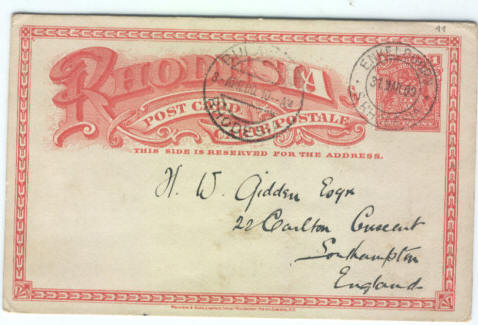 11
RHODESIA
POST CARD
CARTE POSTALE
THIS SIDE IS RESERVED FOR THE ADDRESS.
ENKELDOORN
RHODESIA
H. W. Gidden Esqre
22 Carlton Crescent
Southampton
England